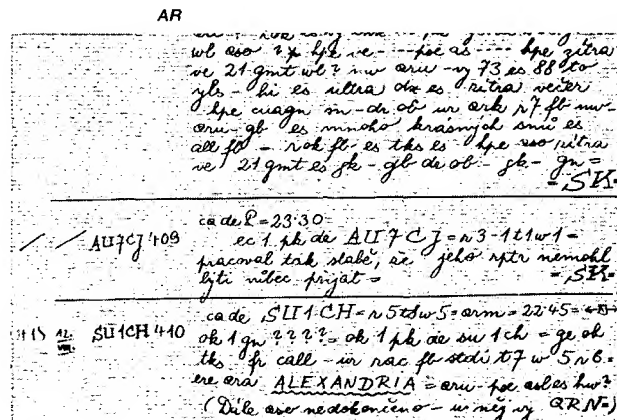 AR
wl aso ? hpe ve - - - - pse as - - - - hpe zitra
ve 21 gmt wl ? nw aru - vy 73 es 88 to
yls - hi es ultra dx es zitra večer
hpe cuagn m - dr ob ur ark r7 fb nw -
aru - gb es mnoho krásných snů es
all fb - rok fb es tks es hpe aso zitra
ve 21 gmt es gk - gb de ob - gb - gn =
- SK -
ca de P = 23·30
AU7CJ 409 ec 1 pk de AU7CJ = r3 - 1 t1 w1 =
pracoval tak slabě, že jeho rptr nemohl
býti vůbec přijat = = SK =
ca de SU1CH = r5 t8 w5 = arm = 22·45 =
12. VIII. SU1CH 410 ok 1 gn ? ? ? ? = ok 1 pk de su 1 ch = ge ok
tks fr call - ur rac fb stdi t7 w 5 r6 =
ere ara ALEXANDRIA = aru - pse hw ?
(Dále aso nedokončeno - u něj vy QRN =)